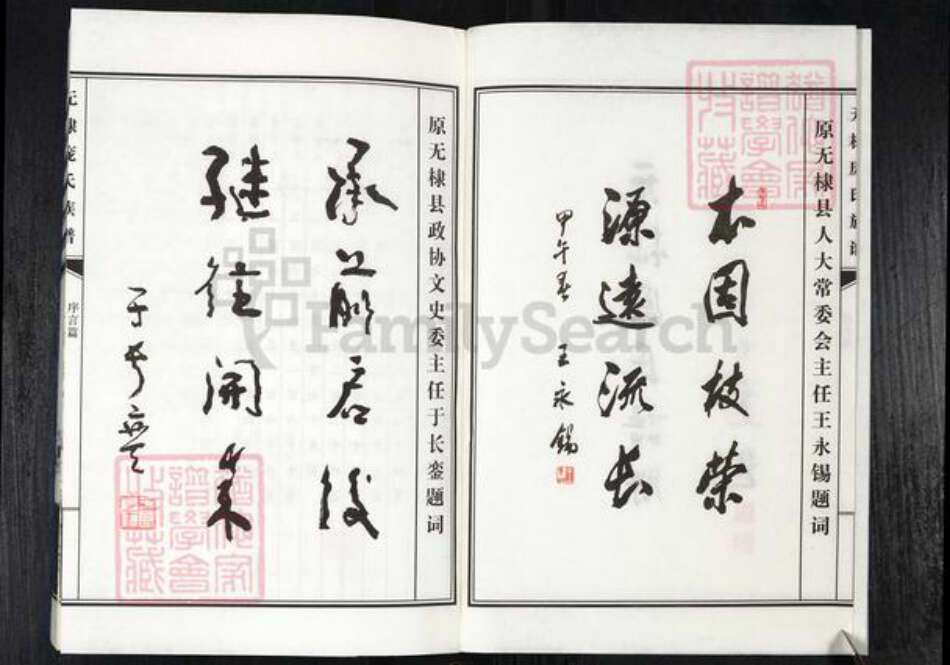 原无棣县人大常委会主任王永锡题词
本固枝荣
源远流长
甲午春 王永锡
原无棣县政协文史委主任于长銮题词
承前启后
继往开来
于长銮
无棣庞氏族谱
序言篇
FamilySearch